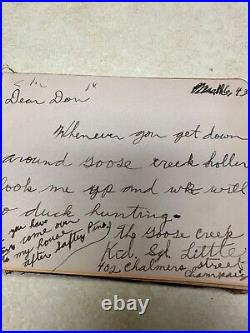 43
Dear Don
Whenever you get down
around Goose creek holler
look me up and we will
go duck hunting.
Ths Goose Creek
Kid. Little
402 Chalmers street
Champaig
you have
come over
to my house
after safty Pins